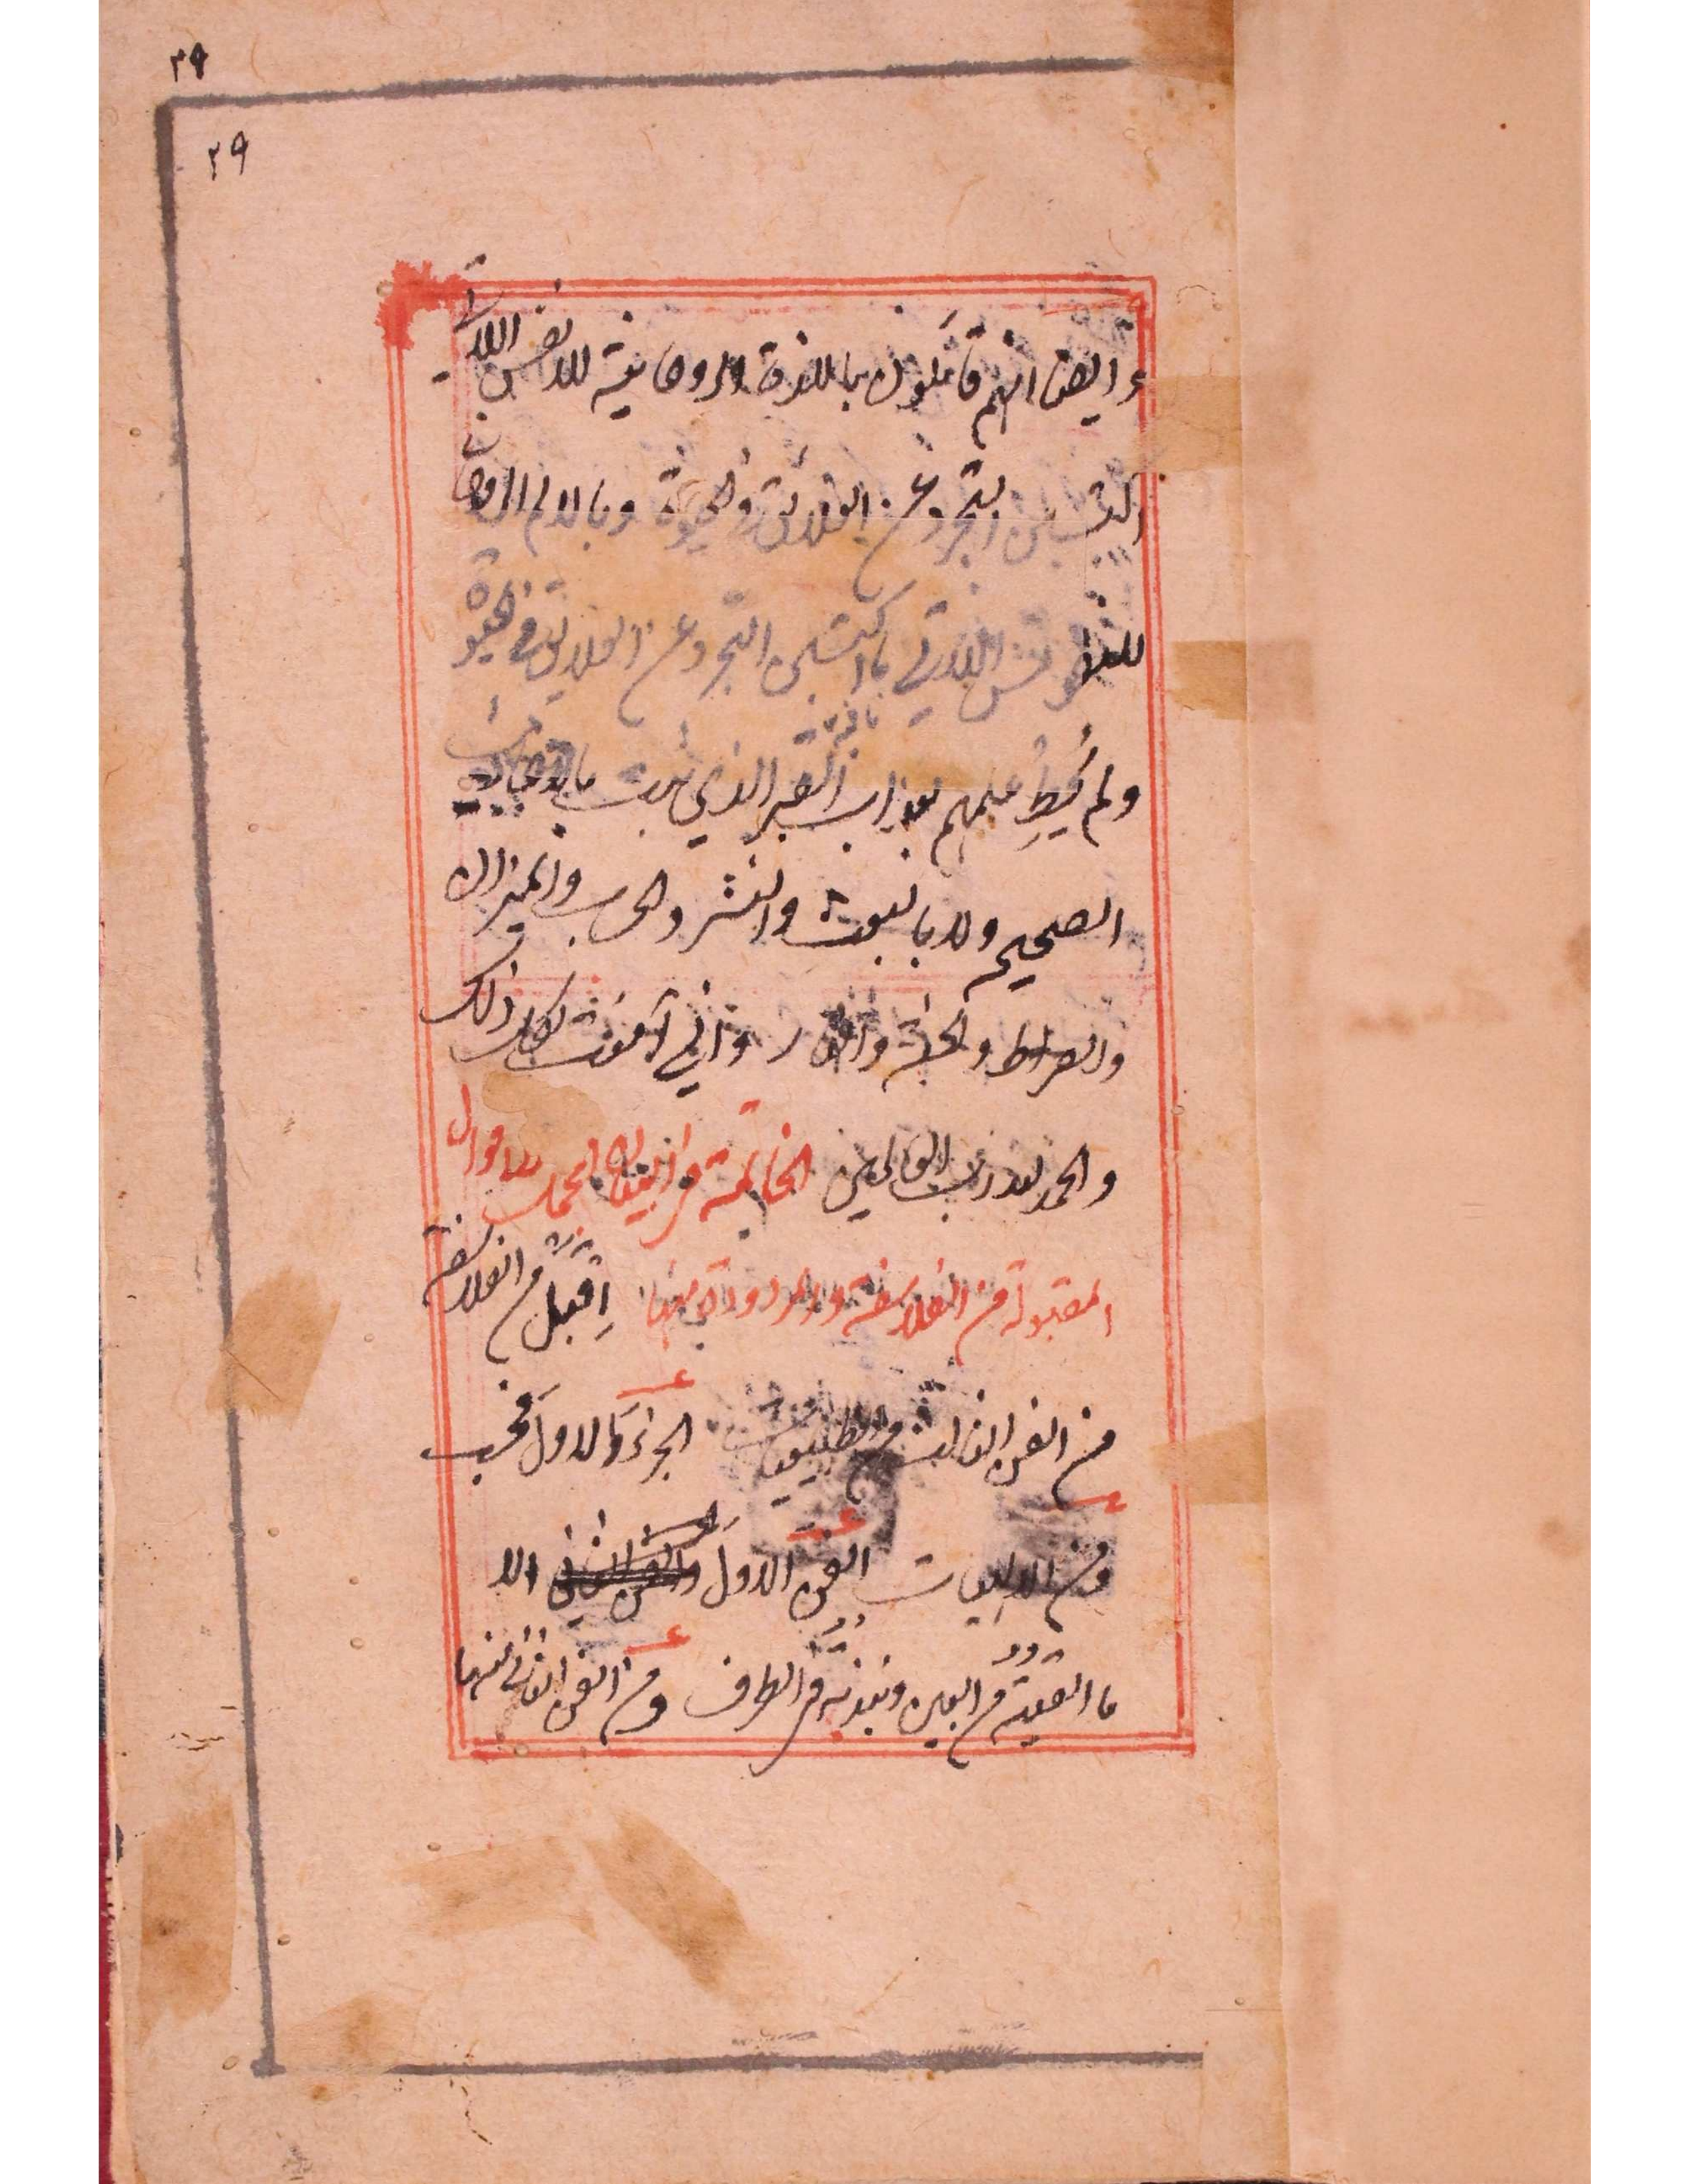 ٢٩
٢٩
وايضا انهم قائلون باللذة الروحانية للانفس اللاتي
اكتسبن التجرد عن العلائق في الحيوة وبالالم الروحاني
للنفوس اللاتي ما اكتسبن التجرد عن العلائق في الحيوة
ولم يُحِط علمهم بعذاب القبر الذي ثبت
الصحيح ولا بالبعث والنشر والحساب والميزان و
والصراط والجنة والنار واني آمنت بكل ذلك
والحمد لله رب العالمين الخاتمة في البيان لاحوال
المقبولة من الفلاسفة والمردودة منها اِقبل من الفلاسفة
من الفن الثالث من الطبيعيات الجزء الاول فحسب
ومن الالهيات الفن الاول والفن الثاني الا
ما القيته من البين ونبذته في الطرف ومن الفن الثالث منها